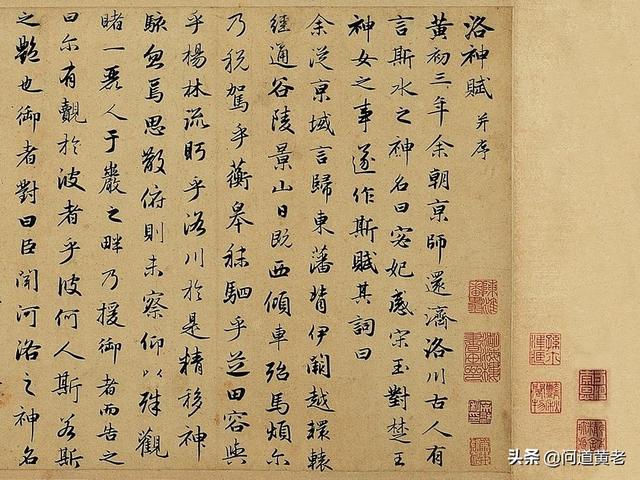 洛神賦 并序
黃初三年余朝京師還濟洛川古人有
言斯水之神名曰宓妃感宋玉對楚王
神女之事遂作斯賦其詞曰
余從京域言歸東藩背伊闕越轘轅
經通谷陵景山日既西傾車殆馬煩尔
乃稅駕乎蘅皋秣駟乎芝田容與
乎楊林流眄乎洛川於是精移神
駭忽焉思散俯則未察仰以殊觀
睹一麗人于巖之畔乃援御者而告之
曰尔有覿於彼者乎彼何人斯若斯
之艷也御者對曰臣聞河洛之神名
头条 @问道黄老